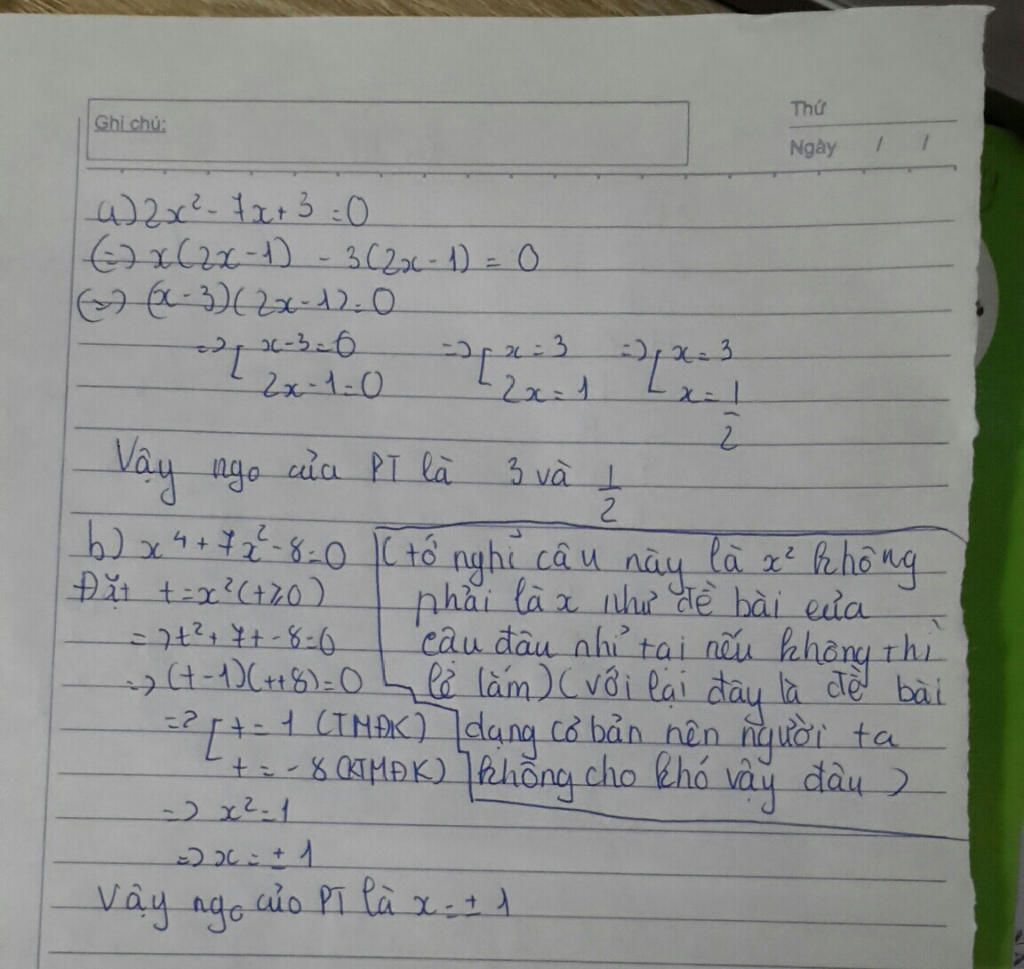 Ghi chú:
Thứ
Ngày / /
a) 2x² - 7x + 3 = 0
(=) x(2x - 1) - 3(2x - 1) = 0
(=) (x - 3)(2x - 1) = 0
=> [ x - 3 = 0 => [ x = 3 => [ x = 3
2x - 1 = 0 2x = 1 x = 1/2
Vậy ngo của PT là 3 và 1/2
b) x⁴ + 7x² - 8 = 0
Đặt t = x² (t ≥ 0)
=> t² + 7t - 8 = 0
=> (t - 1)(t + 8) = 0
=> [ t = 1 (TMĐK)
t = -8 (KTMĐK)
=> x² = 1
=> x = ± 1
Vậy ngo của PT là x = ± 1
(tớ nghỉ câu này là x² không
phải là x như đề bài của
câu đâu nhỉ tại nếu không thì
lẻ lắm) (với lại đây là đề bài
dạng cơ bản nên người ta
không cho khó vậy đâu)